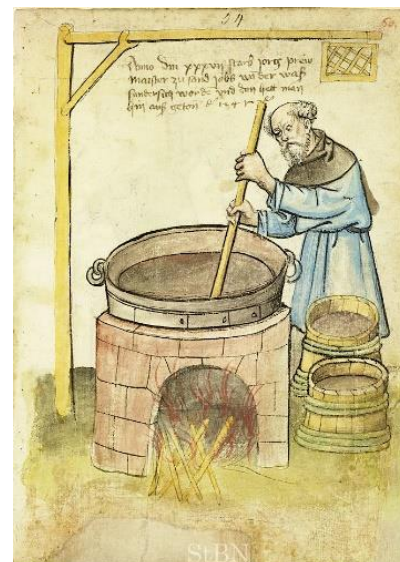 Anno dm xxxvii starb jorg prew
Maister zu sand jobs der was
sundersich worde vnd den hett man
hin aus geton
StBN